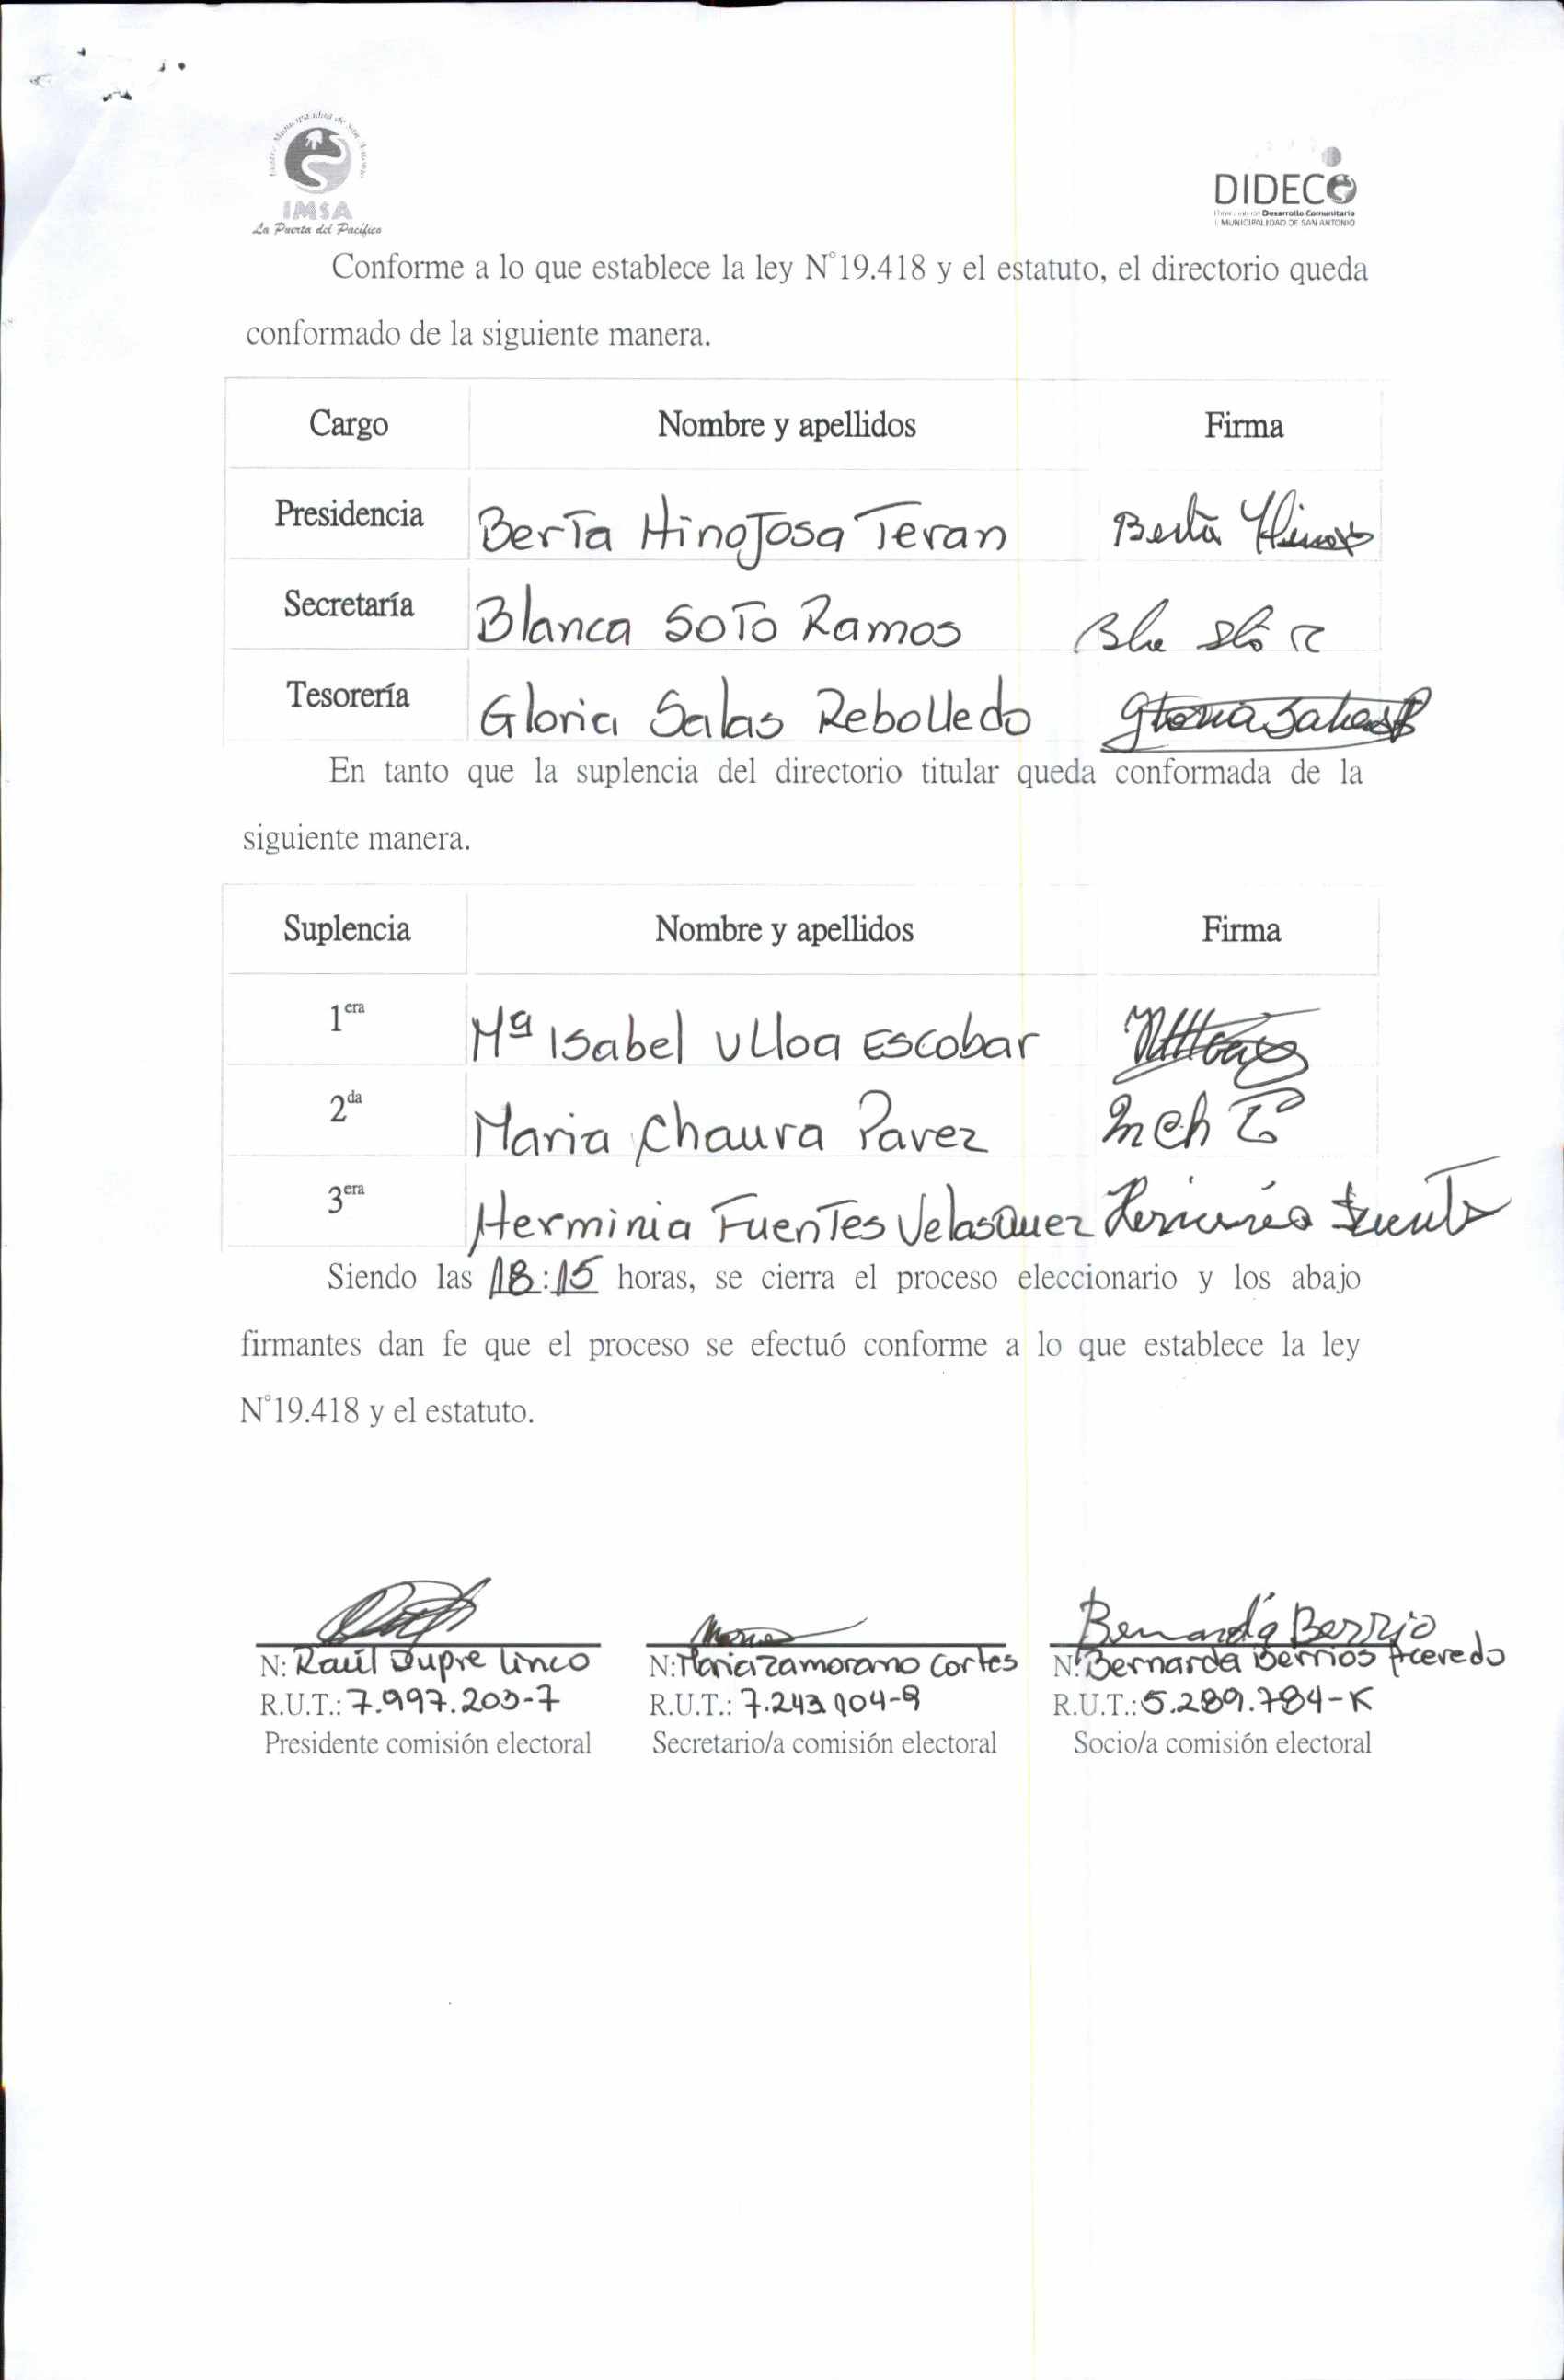 Municipalidad de San Antonio
IMSA
La Puerta del Pacífico
DIDECO
Desarrollo Comunitario
I. MUNICIPALIDAD DE SAN ANTONIO
Conforme a lo que establece la ley N°19.418 y el estatuto, el directorio queda
conformado de la siguiente manera.
Cargo Nombre y apellidos Firma
Presidencia Berta Hinojosa Teran Berta Hinoj
Secretaría Blanca Soto Ramos
Tesorería Gloria Salas Rebolledo Gloria Salas
En tanto que la suplencia del directorio titular queda conformada de la
siguiente manera.
Suplencia Nombre y apellidos Firma
1era Mª Isabel Ulloa Escobar
2da Maria Chaura Pavez M Ch
3era Herminia Fuentes Velasquez Herminia Fuentes
Siendo las 18:15 horas, se cierra el proceso eleccionario y los abajo
firmantes dan fe que el proceso se efectuó conforme a lo que establece la ley
N°19.418 y el estatuto.
Maria Bernarda Berrio
N: Raúl Dupre Linco N: Maria Zamorano Cortes N: Bernarda Berrios Acevedo
R.U.T.: 7.997.203-7 R.U.T.: 7.243.904-9 R.U.T.: 5.289.784-K
Presidente comisión electoral Secretario/a comisión electoral Socio/a comisión electoral